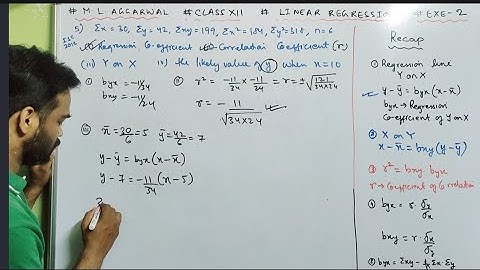 # M L AGGARWAL # CLASS XII # LINEAR REGRESSION # EXE-2
5) Σx = 30, Σy = 42, Σxy = 199, Σx² = 184, Σy² = 318, n = 6
(i) Regression Co-efficient (ii) Correlation Coefficient (r)
(iii) Y on X iv) the likely value of y when x = 10
① byx = -11/34
bxy = -11/24
② r² = -11/34 × -11/24 ⇒ r = ± √121/34×24
r = - 11/√34×24
③ x̄ = 30/6 = 5 ȳ = 42/6 = 7
y - ȳ = byx (x - x̄)
y - 7 = -11/34 (x - 5)
3
Recap
① Regression line
Y on X
y - ȳ = byx (x - x̄)
byx → Regression
Co-efficient of Y on X
② X on Y
x - x̄ = bxy (y - ȳ)
③ r² = bxy · byx
r → Coefficient of Correlation
④ byx = r σy/σx
bxy = r σx/σy